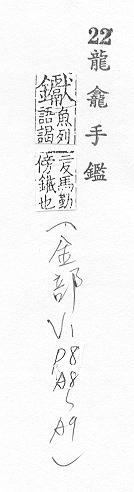 22 龍龕手鑑
钀 魚列語謁二反馬勒傍鐵也
(金部 V1 P8 A8〜A9)